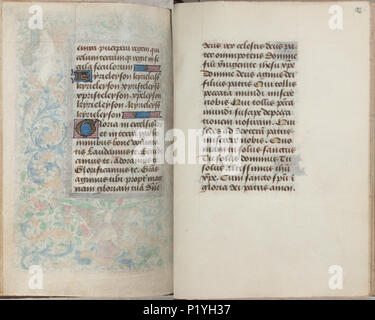 eniya puerpera regem qui
celum terramqz regit in se
cula seculorum
Kyrieleyson kyrieleys
kyrieleyson xpristeleyson
xpristeleyson xpristeleyson
kyrieleyson kyrieleyson
kyrieleyson
Gloria in excelsis
et in terra pax ho
minibus bone volun
tatis Laudamus te
te Adoramus te
Glorificamus te
agimus tibi propter mag
nam gloriam tuam
deus rex celestis deus pa
ter omnipotens Domine
fili unigenite ihesu xpe
Domine deus agnus dei
filius patris Qui tollis
peccata mundi misere
nobis Qui tollis pecca
mundi suscipe depreca
tionem nostram Qui
sedes ad dexteram patris
miserere nobis Quo
niam tu solus sanctus
Tu solus dominus Tu
solus altissimus ihu
xpe Cum sancto spiritu i
gloria dei patris amen
alamy
Image ID: P1YH37
www.alamy.com